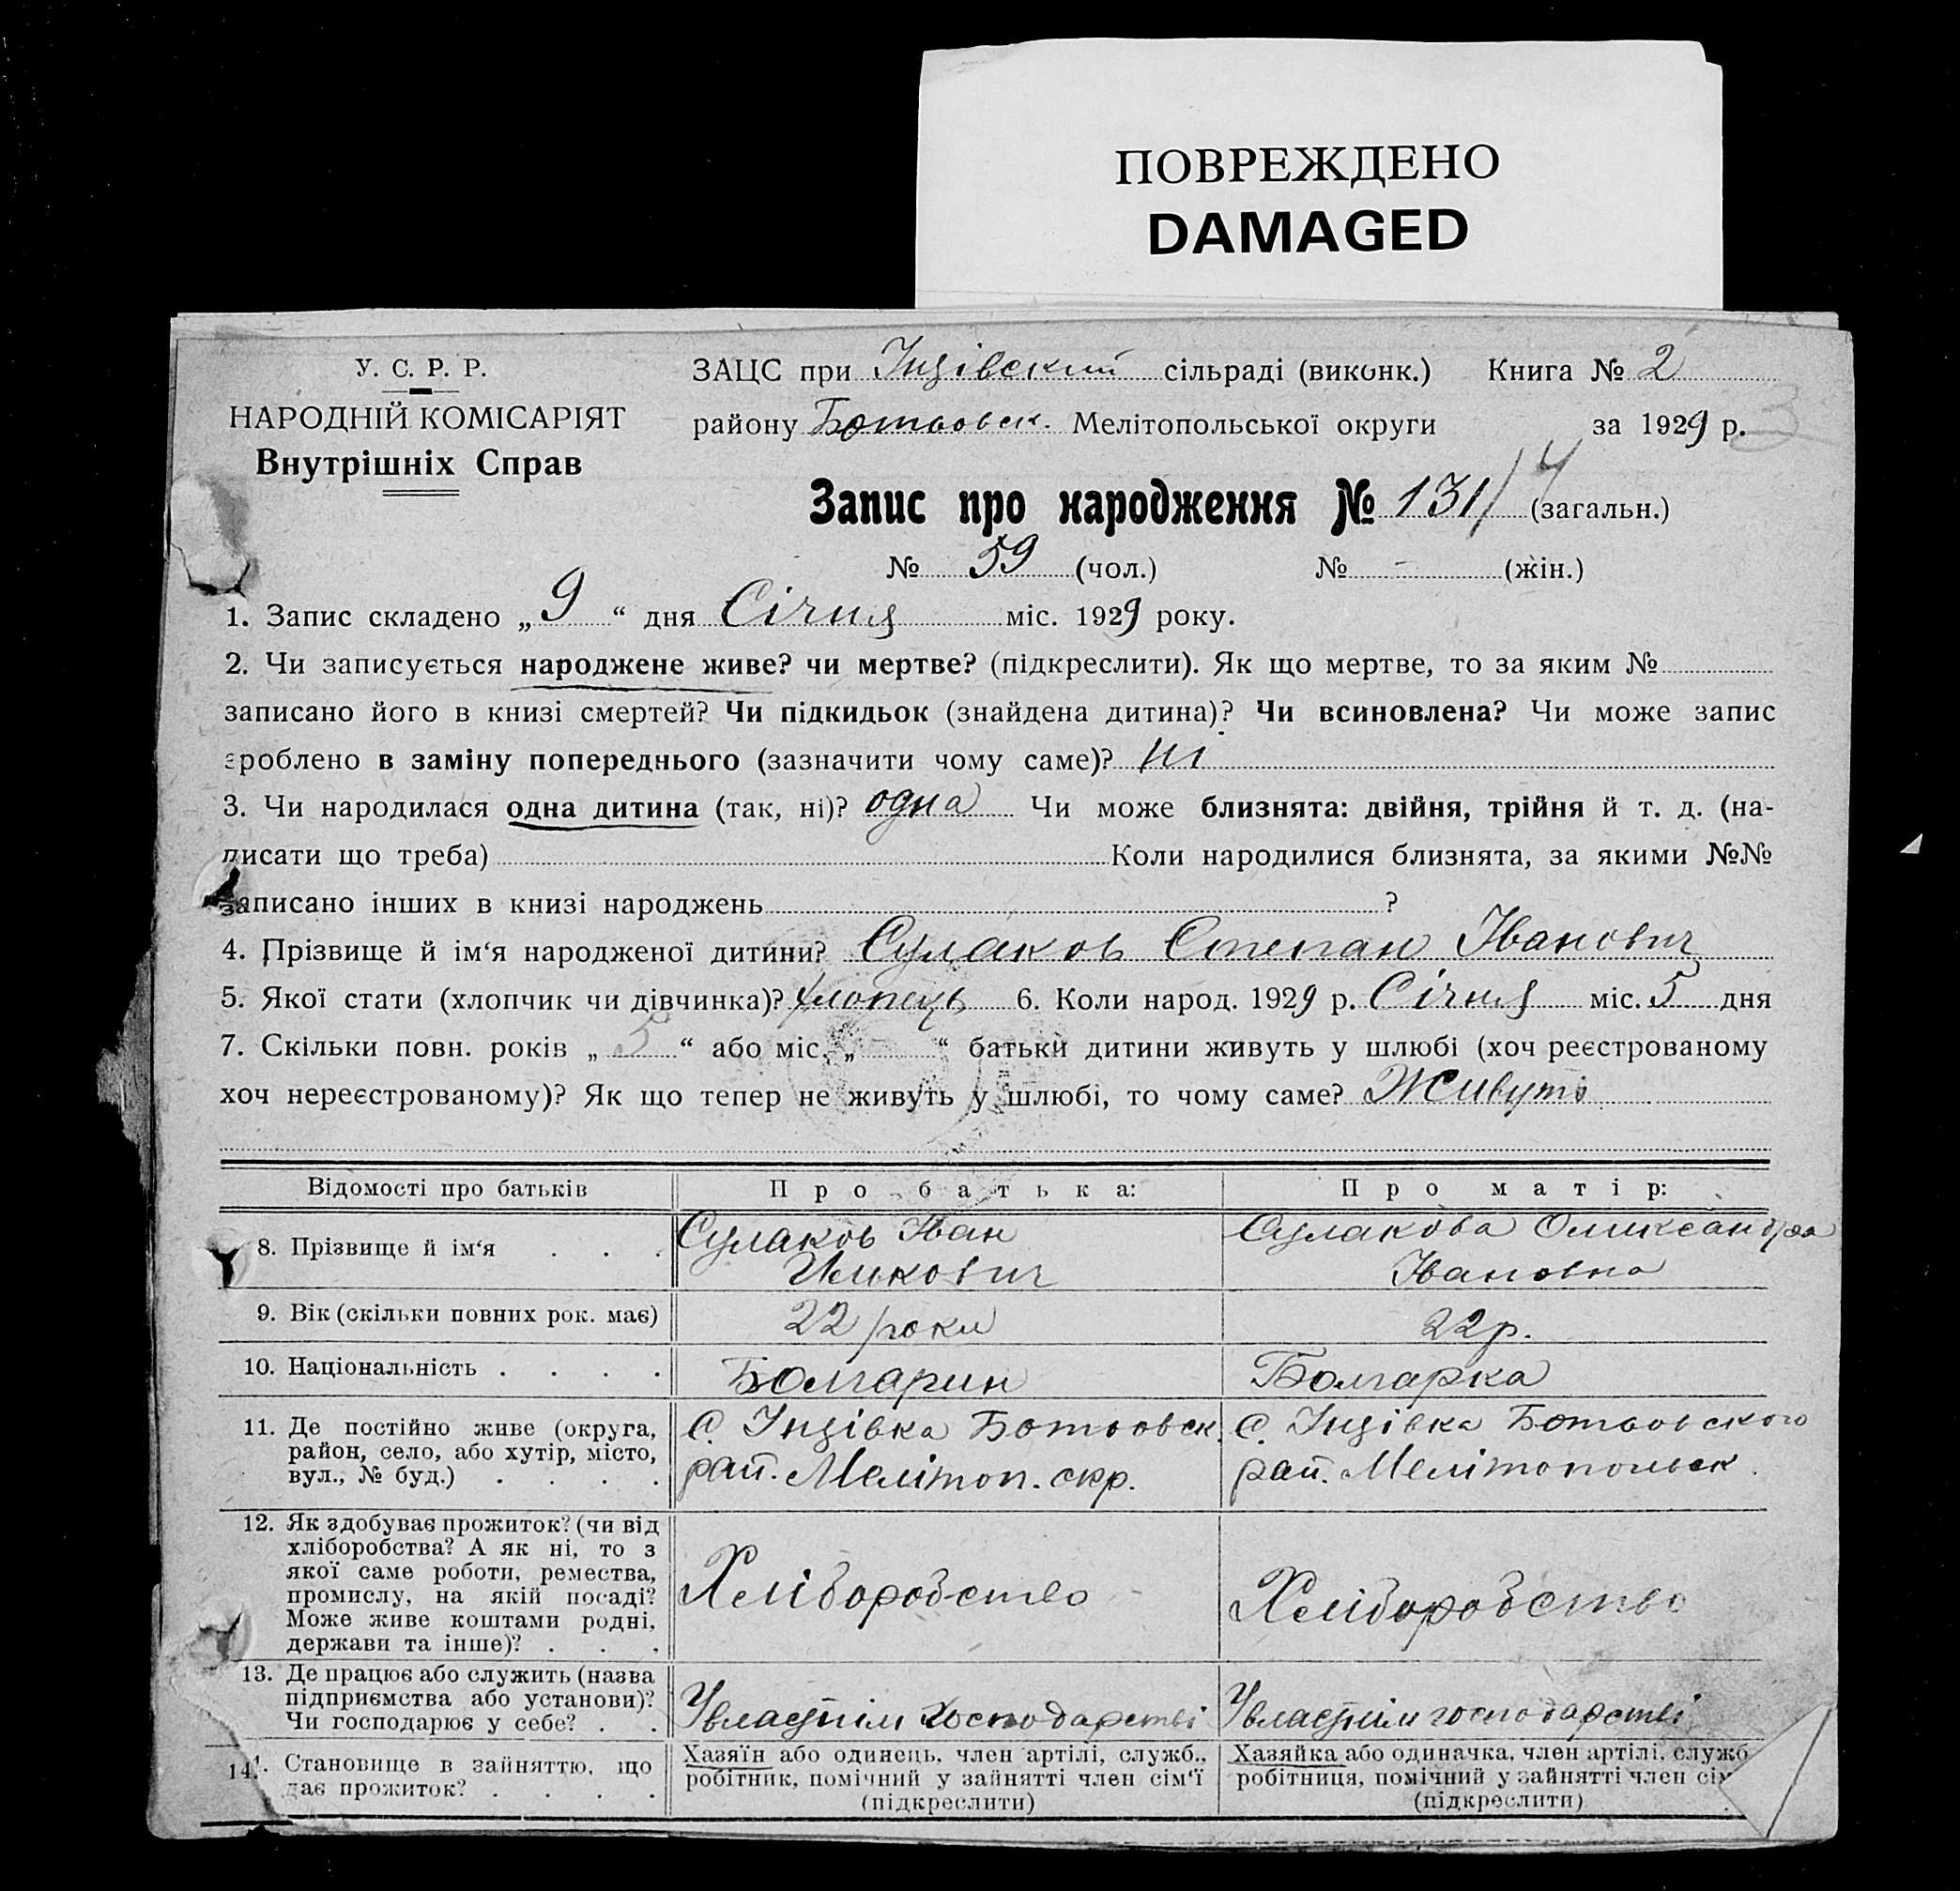 ПОВРЕЖДЕНО
DAMAGED
У. С. Р. Р.
НАРОДНІЙ КОМІСАРІЯТ
Внутрішніх Справ
ЗАЦС при Інзівский сільраді (виконк.) Книга № 2
району Ботьовск. Мелітопольської округи за 1929 р.
3
Запис про народження № 131/4 (загальн.)
№ 59 (чол.) № - (жін.)
1. Запис складено „ 9 “ дня Січня міс. 1929 року.
2. Чи записується народжене живе? чи мертве? (підкреслити). Як що мертве, то за яким №
записано його в книзі смертей? Чи підкидьок (знайдена дитина)? Чи всиновлена? Чи може запис
зроблено в заміну попереднього (зазначити чому саме)? ні
3. Чи народилася одна дитина (так, ні)? одна Чи може близнята: двійня, трійня й т. д. (на-
писати що треба) Коли народилися близнята, за якими №№
записано інших в книзі народжень ?
4. Прізвище й ім‘я народженої дитини? Сулаков Степан Іванович
5. Якої стати (хлопчик чи дівчинка)? хлопець 6. Коли народ. 1929 р. Січня міс. 5 дня
7. Скільки повн. років „ 5 “ або міс. „ “ батьки дитини живуть у шлюбі (хоч реєстрованому
хоч нереєстрованому)? Як що тепер не живуть у шлюбі, то чому саме? Живуть
Відомості про батьків Про батька: Про матір:
8. Прізвище й ім‘я . . .
Сулаков Іван
Сулакова Олександра
Івановна
9. Вік (скільки повних рок. має) 22 роки 22 р.
10. Національність . . . . Болгарин Болгарка
11. Де постійно живе (округа,
район, село, або хутір, місто,
вул., № буд.) . . . .
С. Інзівка Ботьовск.
рай. Мелітоп. окр.
С. Інзівка Ботьовского
рай. Мелітопольск.
12. Як здобуває прожиток? (чи від
хліборобства? А як ні, то з
якої саме роботи, ремества,
промислу, на якій посаді?
Може живе коштами родні,
держави та інше)? . . .
Хліборобство
Хліборобство
13. Де працює або служить (назва
підприємства або установи)?
Чи господарює у себе? . .
У власнім господарстві
У власнім господарстві
14. Становище в зайняттю, що
дає прожиток? . . . .
Хазяїн або одинець, член артілі, служб.,
робітник, помічний у зайнятті член сім‘ї
(підкреслити)
Хазяйка або одиначка, член артілі, служб
робітниця, помічний у зайнятті член сім
(підкреслити)